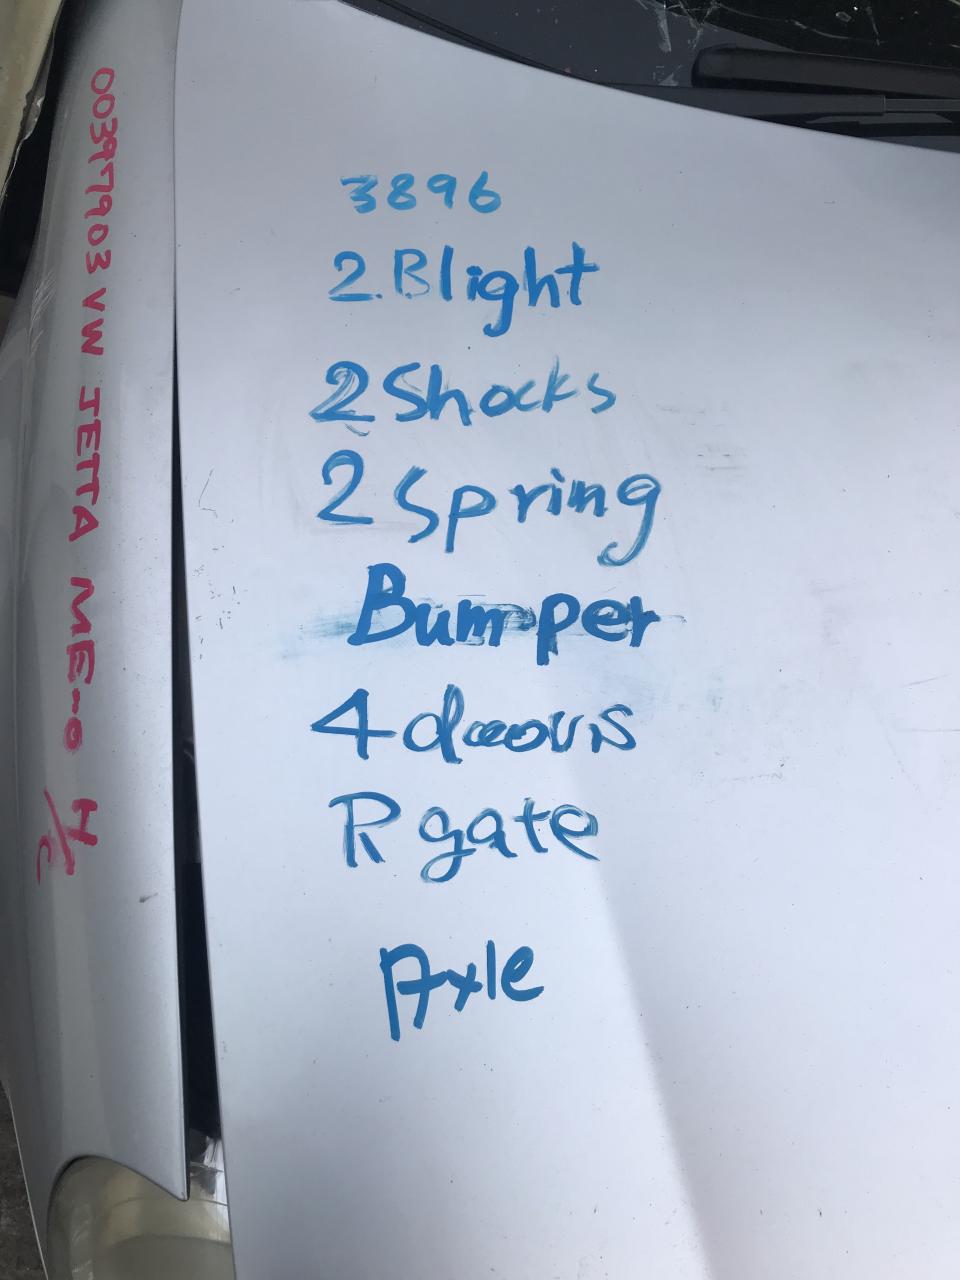 00397903 VW JETTA ME-0 H/C
3896
2.Blight
2 Shocks
2 Spring
Bumper
4 doors
R gate
Axle